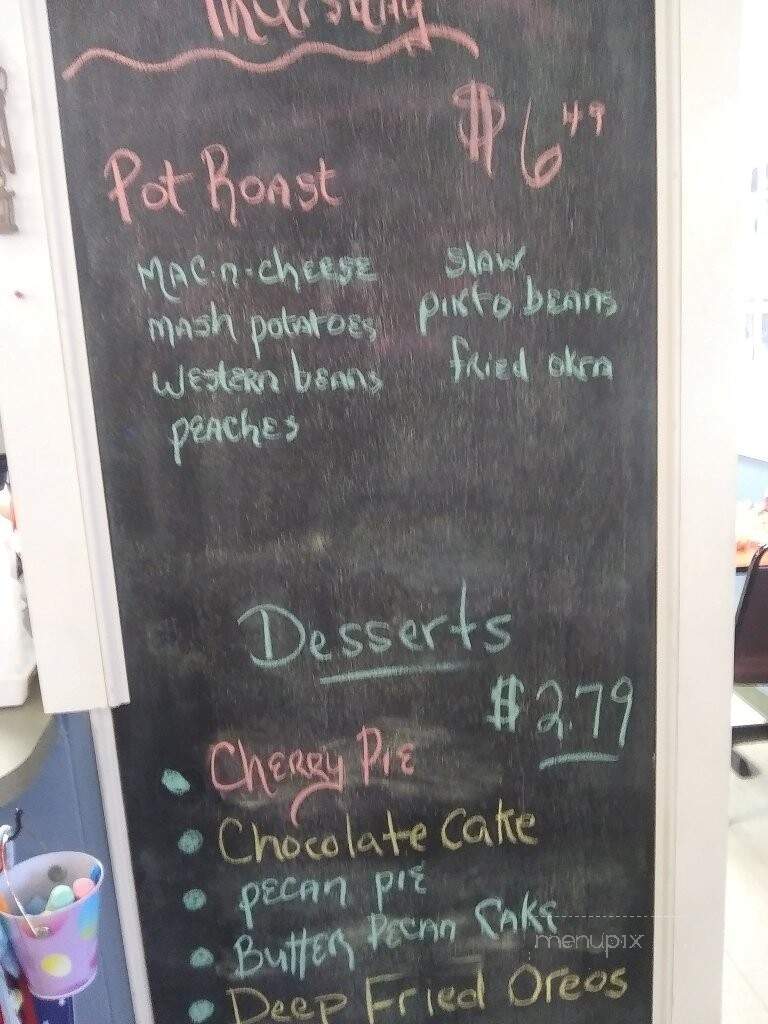 Thursday
$6.49
Pot Roast
MAC-n-cheese
MAsh potatoes
Western beans
peaches
Slaw
pinto beans
fried okra
Desserts
$2.79
Cherry Pie
Chocolate Cake
pecan pie
Butter Pecan Cake
Deep Fried Oreos
menupix